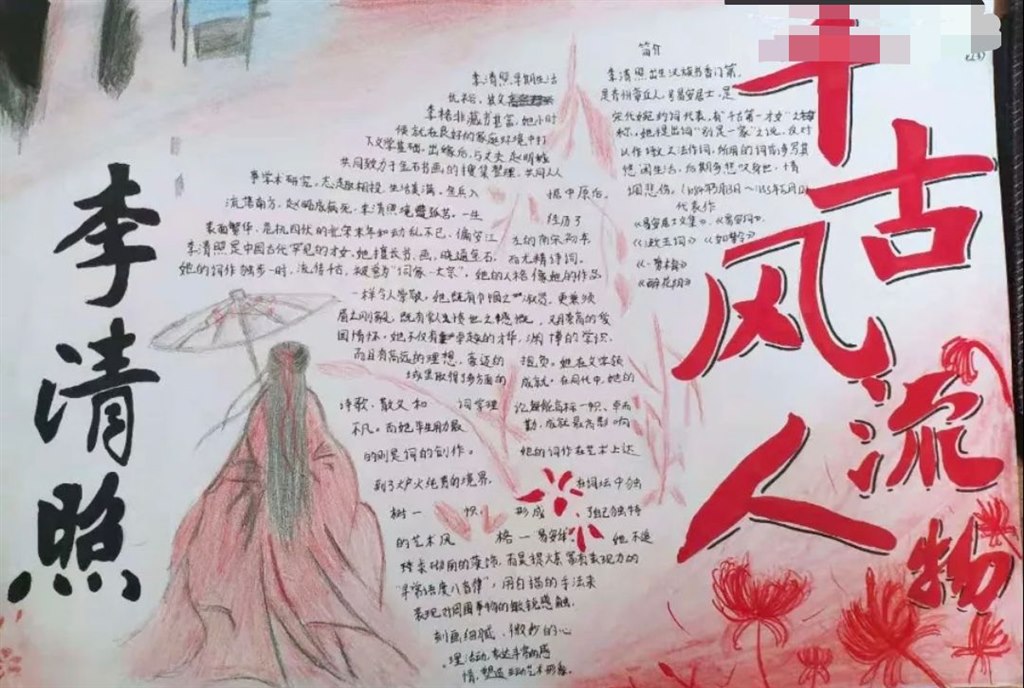 李清照
千古
风流
人物
简介
李清照出生汉族书香门第,
是齐州章丘人,号易安居士,是
宋代婉约词代表,有"千古第一才女"之称
称,她提出词"别是一家"之说,反对
以作诗文之法作词,所用的词前期多写其
悠闲生活,后期多悲叹身世,情
调悲伤。
代表作
《易安居士文集》、《易安词》、
《漱玉词》《如梦令》
《一剪梅》
《醉花阴》
李清照早期生活
优裕,其父
李格非藏书甚富,她小时
候就在良好的家庭环境中打
下文学基础,出嫁后,与丈夫赵明诚
共同致力于金石书画的搜集整理,共同从
事学术研究,志趣相投,生活美满,金兵入 据中原后,
流落南方,赵明诚病死,李清照境遇孤苦。一生 经历了
表面繁华、危机四伏的北宋末年和动乱不已、偏安江 左的南宋初年
李清照是中国古代罕见的才女,她擅长书、画,晓通金石, 而尤精诗词。
她的词作独步一时,流传千古,被誉为"词家一大宗"。她的人格像她的作品
一样令人崇敬。她既有巾帼之淑贤,更兼须
眉之刚毅,既有常人愤世之感慨,又具崇高的爱
国情怀。她不仅有卓越的才华,渊博的学识,
而且有高远的理想,豪迈的 抱负。她在文学领
域里取得了多方面的 成就。在同代中,她的
诗歌、散文和 词学理 论都能高标一帜、卓而
不凡。而她毕生用力最 勤,成就最高影响
的则是词的创作。 她的词作在艺术上达
到了炉火纯青的境界, 在词坛中独
树一 帜, 形成 了自己独特
的艺术风 格—易安体 她不追
求砌丽的藻饰,而是提炼富有表现力的
"寻常语度八音律",用白描的手法来
表现对周围事物的敏锐感触,
刻画细腻、微妙的心
理活动,表达丰富的感
情,塑造生动艺术形象。